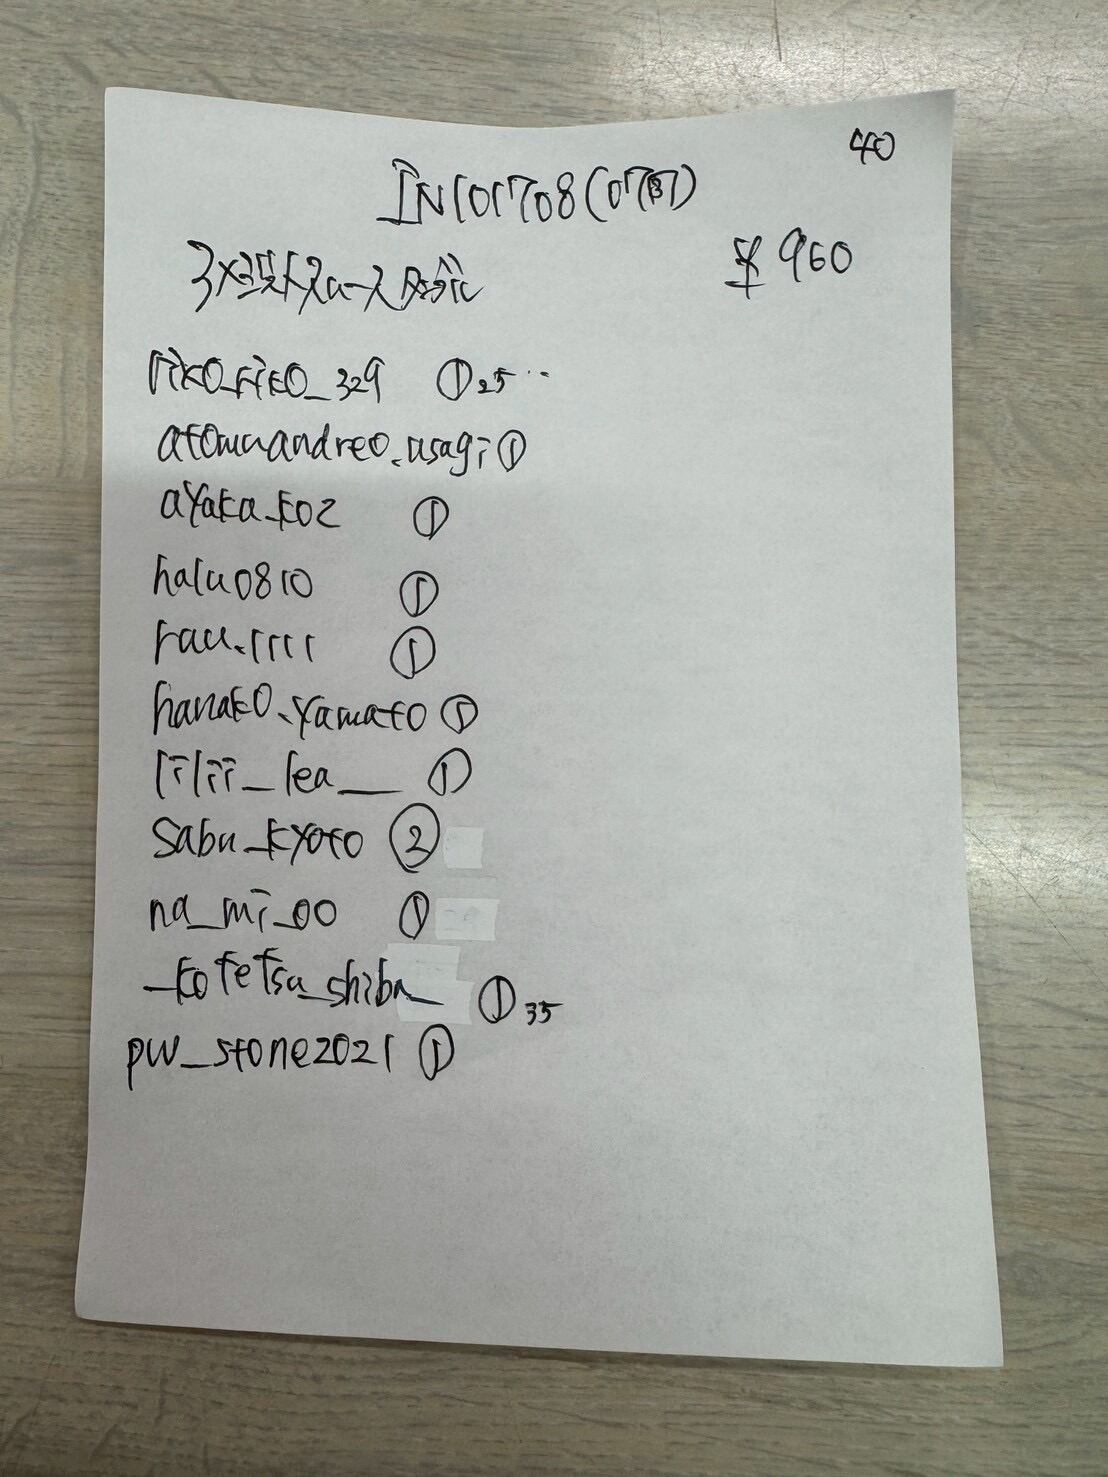 40
IN101708(0787)
¥960
riko_riko_329 ① 25
atomuandreo.usagi ①
ayaka_k02 ①
halu0810 ①
rau.1111 ①
hanako.yamato ①
lilii_lea__ ①
sabu_kyoto ②
na_mi_00 ①
_kotetsu_shiba_ ① 35
pw_stone2021 ①